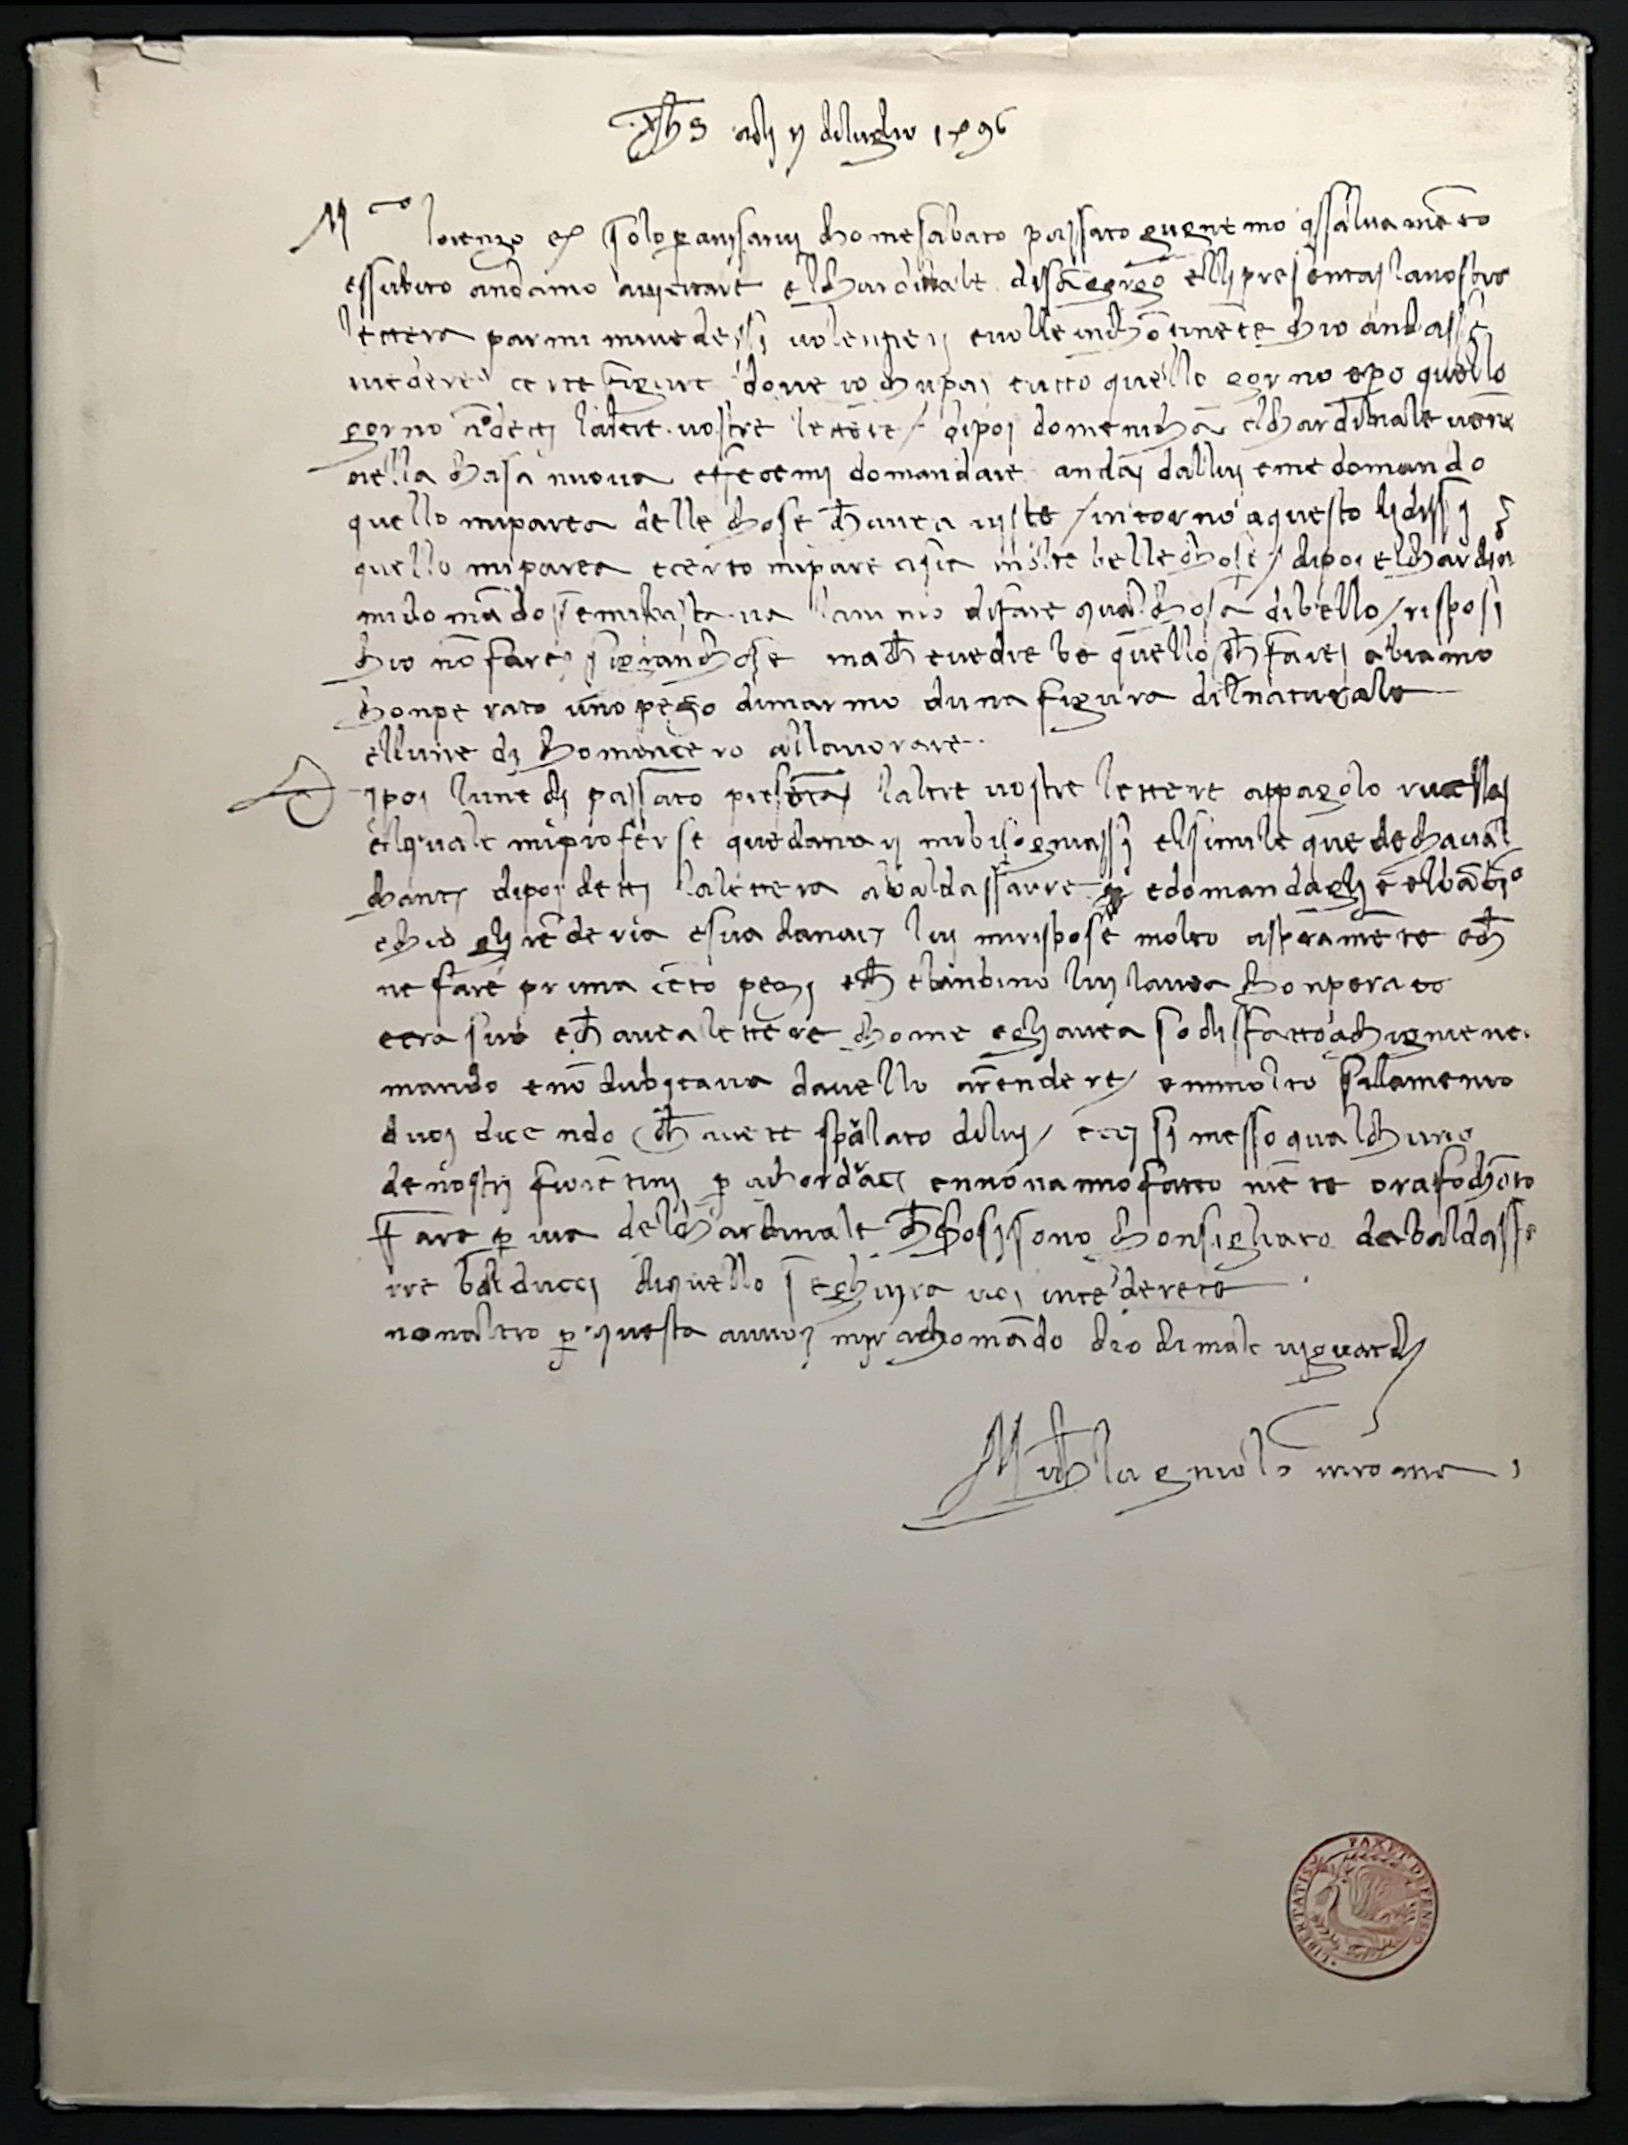 Xhs adj ij diluglio 1496
Mco lorenzo ec solo p avisarvj chome sabato passato gugnemo assalvameto
essubito andamo avicitare elchardinale disagorgo ellj presentai lavostra
lettera parmi mi vedessi volentierj evolle inchotinete chio andassi
avedere certe figure dove io chupai tutto quello gorno epo quello
gorno no detti laltre vostre lettere / dipoi domenicha elchardinale vene
nella chasa nuova effecemi domandare andai dallui eme domando
quello miparea delle chose ch avea viste / intorno aquesto lidissi
quello miparea ecerto mipare cisia molte belle chose / dipoi elchardi
mi domado semi bastava lanimo difare qualchosa dibello / risposi
chio no farei sigran chose mach e vedrebe quello ch farei abiamo
chonperato uno pezo dimarmo duna figura dilnaturale
ellunedj chomincero allavorare
Dipoi lunedj passato presetai laltre vostre lettere appagolo rucellai
elquale mi proferse que danarj mi bisogniassi elsimile que dechaval
chantj dipoi detti lalettera abaldassarre edomandagli elbabino
echio gli rederia esua danarj luj mirispose molto aspramete ech
ne fare prima ceto pezi ech elbanbino luj lavea chonperato
eera suo ech avea lettere chome eglj avea sodisfatto achi gniene
mando eno dubitava davello arendere / emmolto silamento
di voi dicendo ch avete sparlato diluj / ecci si messo qualchuno
denostrj fioretinj p achordacj ennonanno fatto niete ora fo choto
fare p via delchardinale ch chosi sono chonsigliato dabaldass
rre balduccj diquello seghuira voi intederete
nonaltro p questa avvoi mirachomado dio di male vi guardj
Michelagniolo inroma
LIBERTATIS
PAX ET DEFENSIO